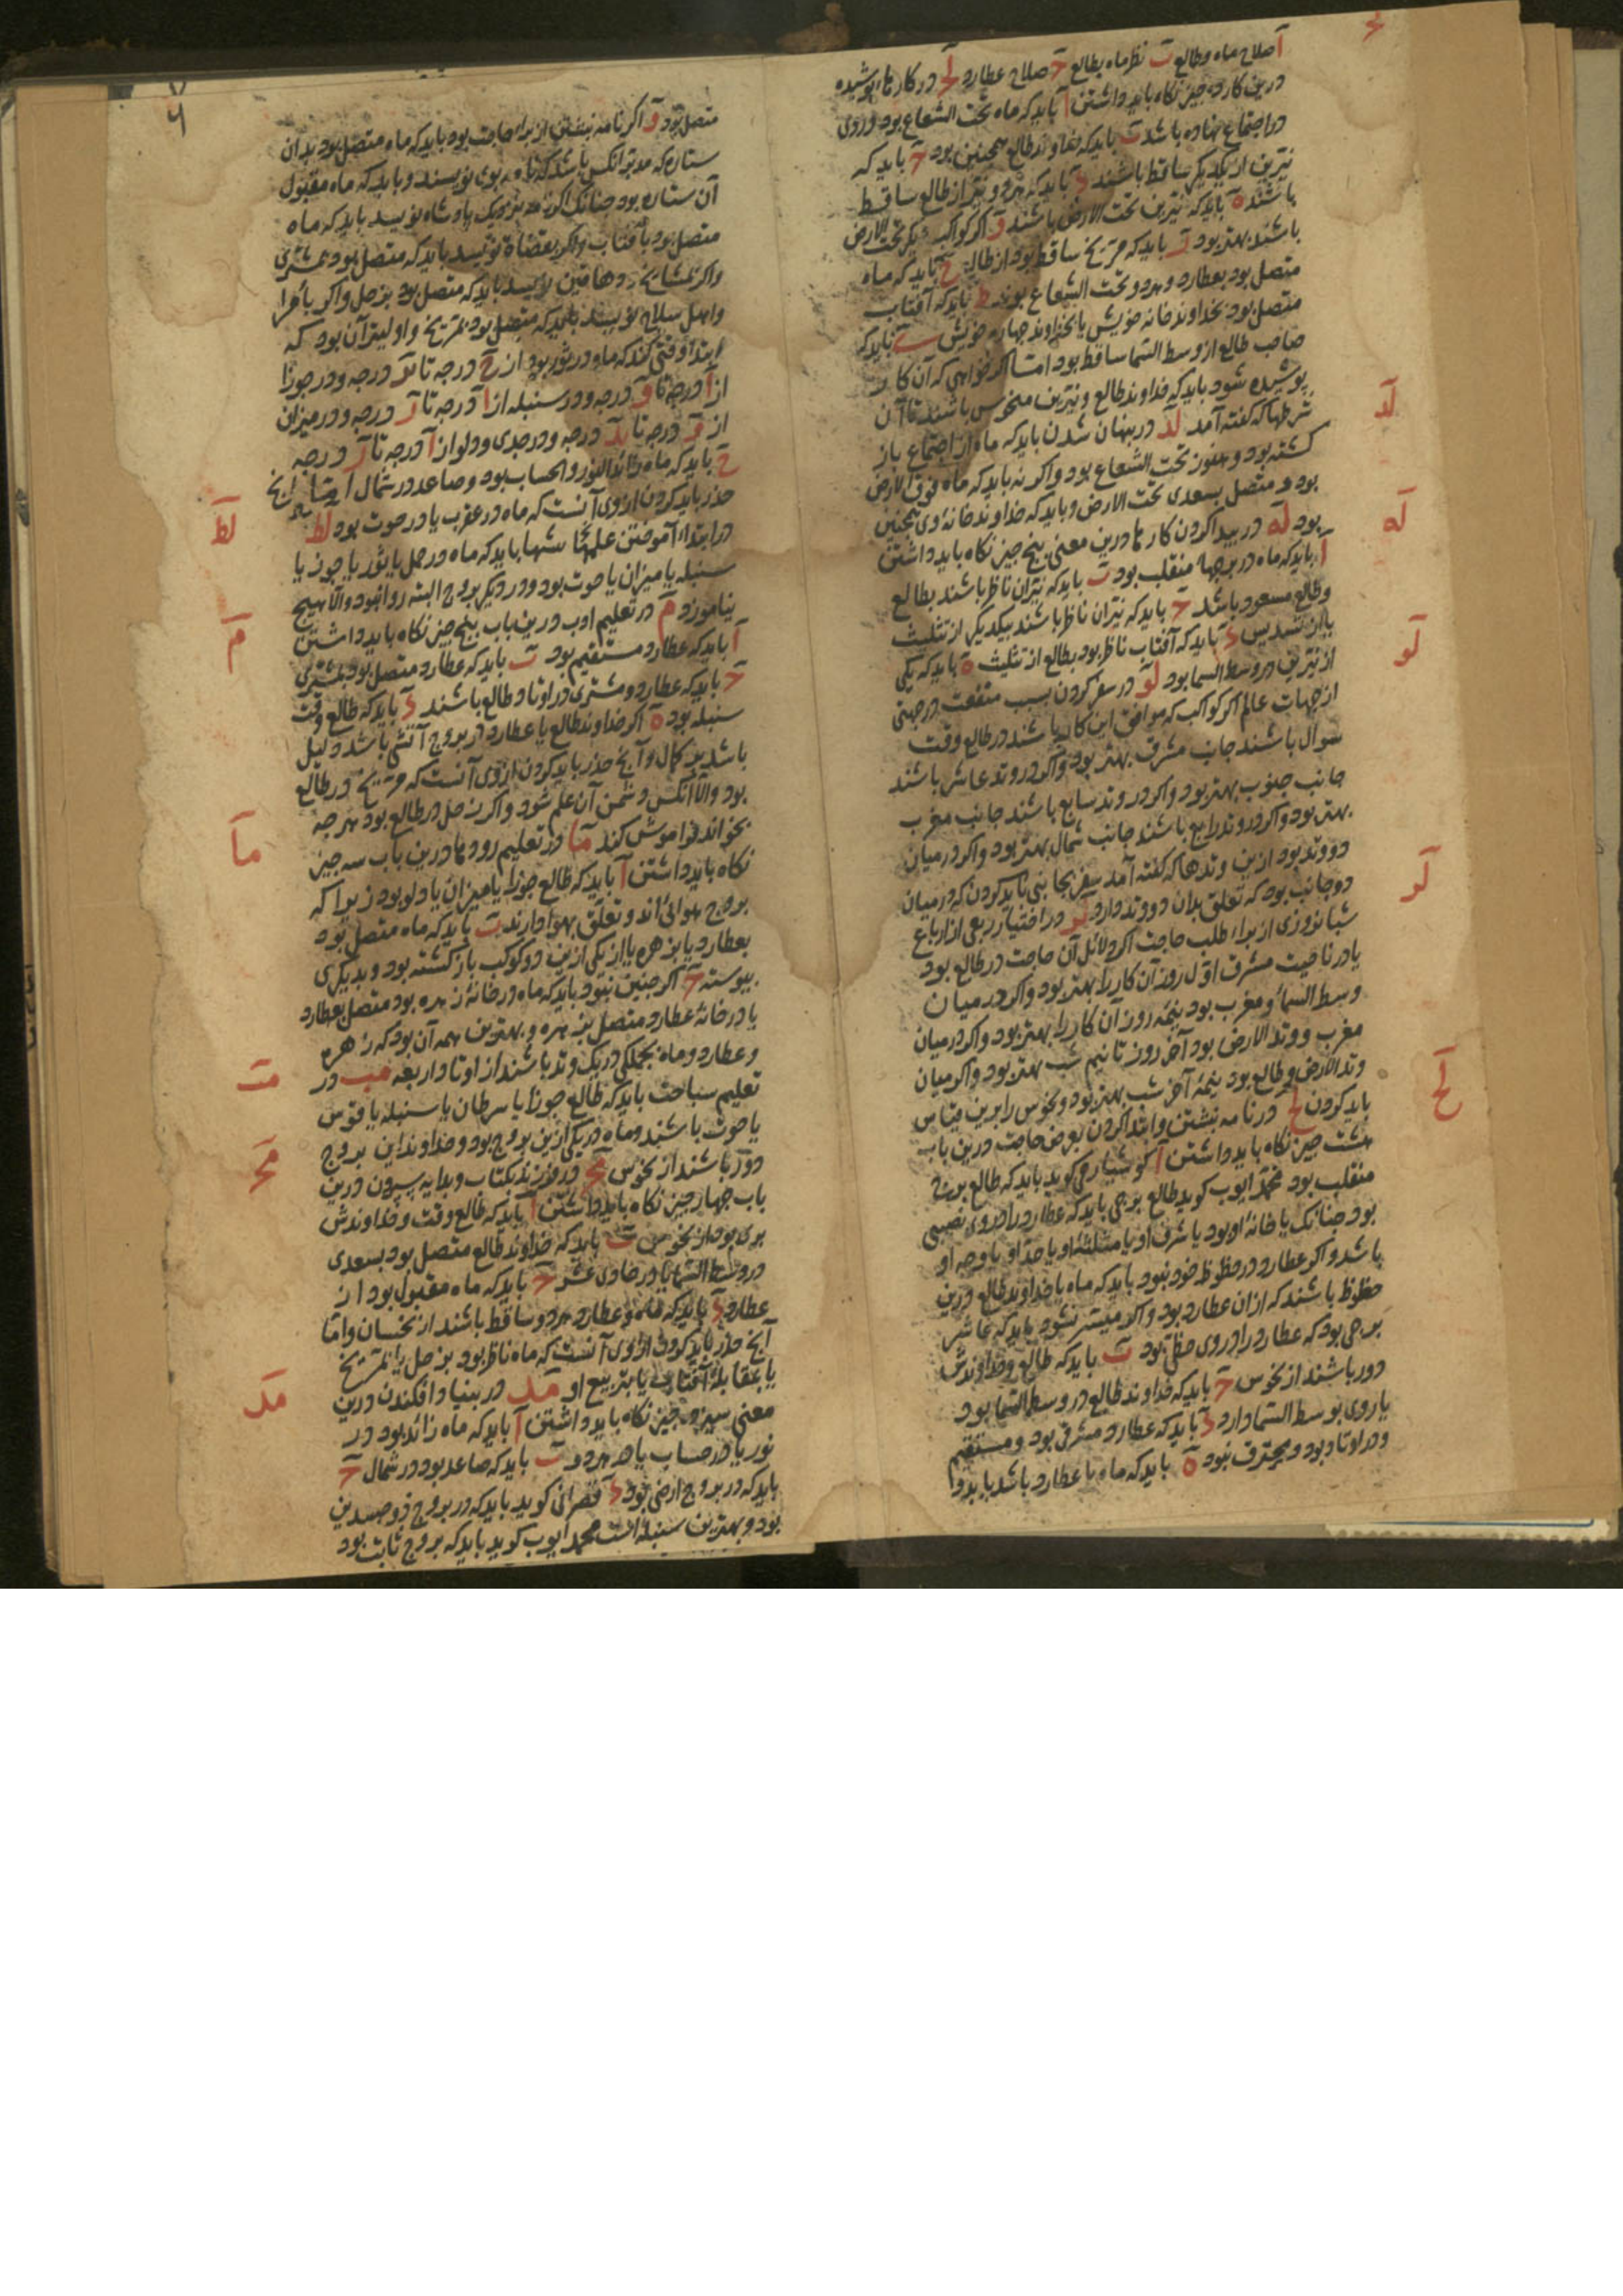 آ صلاح ماه و طالع ب نظر ماه بطالع ح صلاح عطارد لح در کارهاء پوشیده
درین کار ده چیز نکاه باید داشتن آ باید که ماه تحت الشعاع بود و روی
در اجتماع نهاده باشد ب باید که خداوند طالع همچنین بود ح باید که
نیّرین از یکدیکر ساقط باشند د باید که هردو نیّر از طالع ساقط
باشند ه باید که نیّرین تحت الارض باشند و اکر کواکب دیکر تحت الارض
باشند بهتر بود ز باید که مریخ ساقط بود از طالع ح باید که ماه
متصل بود بعطارد و هردو تحت الشعاع بوند ط باید که آفتاب
متصل بود بخداوند خانه خویش یا بخداوند چهارم خویش ی باید که
صاحب طالع از وسط السما ساقط بود امّا اکر خواهی که آن کار
پوشیده شود باید که خداوند طالع و نیّرین منحوس باشند تا آن
شرطها که کفته آمد لد در پنهان شدن باید که ماه از اجتماع باز
کشته بود و هنوز تحت الشعاع بود و اکر نه باید که ماه فوق الارض
بود و متصل بسعدی تحت الارض و باید که خداوند خانه‌ٔ وی همچنین
بود له در پیدا کردن کارها درین معنی پنج چیز نکاه باید داشتن
آ باید که ماه در برجهاء منقلب بود ب باید که نیّران ناظر باشند بطالع
و طالع مسعود باشد ح باید که نیّران ناظر باشند بیکدیکر از تثلیث
یا از تسدیس د باید که آفتاب ناظر بود بطالع از تثلیث ه باید که یکی
از نیّرین در وسط السما بود لو در سفر کردن بسبب منفعت در جهتی
از جهات عالم اکر کواکب که موافق این کار باشند در طالع وقت
سوال باشند جانب مشرق بهتر بود و اکر در وتد عاشر باشند
جانب جنوب بهتر بود و اکر در وتد سابع باشند جانب مغرب
بهتر بود و اکر در وتد رابع باشند جانب شمال بهتر بود و اکر در میان
دو وتد بود ازین وتدها که کفته آمد سفر بجانبی باید کردن که در میان
دو جانب بود که تعلق بدان دو وتد دارد لز در اختیار ربعی از ارباع
شبانروزی از براء طلب حاجت اکر دلائل آن حاجت در طالع بود
یا در ناحیت مشرق اوّل روز آن کار را بهتر بود و اکر در میان
وسط السماء و مغرب بود نیمه روز آن کار را بهتر بود و اکر در میان
مغرب و وتد الارض بود آخر روز تا نیم شب بهتر بود و اکر میان
وتد الارض و طالع بود نیمه‌ٔ آخر شب بهتر بود و نحوس را برین قیاس
باید کردن لح در نامه نبشتن و ابتدا کردن بعرض حاجت درین باب
هشت چیز نکاه باید داشتن آ کوشیار می‌کوید باید که طالع برج
منقلب بود محمّد ایوب کوید طالع برجی باید که عطارد را در وی نصیبی
بود چنانک یا خانهٔ او بود یا شرف او یا مثلثهٔ او یا حدّ او یا وجه او
باشد و اکر عطارد در حظوظ خود نبود باید که ماه یا خداوند طالع درین
حظوظ باشند که از ان عطارد بود و اکر میسّر نشود باید که عاشر
برجی بود که عطارد را در وی حظی بود ب باید که طالع و خداوندش
دور باشند از نحوس ح باید که خداوند طالع در وسط السما بود
یا روی بوسط السما دارد د باید که عطارد مشرقی بود و مستقیم
و در اوتاد بود و محترق نبود ه باید که ماه با عطارد باشد یا بدو
لد
له
لو
لز
لح
متصل بود و اکر نامه نبشتن از براء حاجت بود باید که ماه متصل بود بدان
ستاره که مدبّر آنکس باشد که نامه بوی نویسند و باید که ماه مقبول
آن ستاره بود چنانک اکر نامه نزدیک پادشاه نویسد باید که ماه
متصل بود بآفتاب و اکر بقضاة نویسد باید که متصل بود بمشتری
و اکر بمشایخ و دهاقین نویسد باید که متصل بود بزحل و اکر بأمرا
و اهل سلاح نویسد باید که متصل بود بمریخ و اولیتر آن بود که
ابتدا وقتی کند که ماه در ثور بود از ح درجه تا درجه و در جوزا
از آ درجه تا و درجه و در سنبله از آ درجه تا ز درجه و در میزان
از و درجه تا ید درجه و در جدی و دلو از آ درجه تا ز درجه
ح باید که ماه زائد النور و الحساب بود و صاعد در شمال امّا آنچ
حذر باید کردن از وی آنست که ماه در عقرب یا در حوت بود لط
در ابتداء آموختن علمها باید که ماه در حمل یا ثور یا جوزا یا
سنبله یا میزان یا حوت بود و در دیکر بروج البته روا نبود و الّا هیچ
نیاموزد م در تعلیم ادب درین باب پنج چیز نکاه باید داشتن
آ باید که عطارد مستقیم بود ب باید که عطارد متصل بود بمشتری
ح باید که عطارد و مشتری در اوتاد طالع باشند د باید که طالع وقت
سنبله بود ه اکر خداوند طالع یا عطارد در بروج آتشی باشد دلیل
باشد بر کمال و آنچ حذر باید کردن از وی آنست که مریخ در طالع
بود و الّا آنکس دشمن آن علم شود و اکر زحل در طالع بود هر چه
بخواند فراموش کند ما در تعلیم رودها درین باب سه چیز
نکاه باید داشتن آ باید که طالع جوزا یا میزان یا دلو بود زیرا که
بروج هوائی‌اند و تعلق بهوا دارند ب باید که ماه متصل بود
بعطارد یا بزهره یا از یکی ازین دو کوکب باز کشته بود و بدیکری
پیوسته ح اکر چنین نبود باید که ماه در خانهٔ زهره بود متصل بعطارد
یا در خانهٔ عطارد متصل بزهره و بهترین همه آن بود که زهره
و عطارد و ماه بجملکی در یک وتد باشند از اوتاد اربعه مب در
تعلیم سباحت باید که طالع جوزا یا سرطان یا سنبله یا قوس
یا حوت باشند و ماه در یکی ازین بروج بود و خداوند این بروج
دور باشند از نحوس مح در فرزند بکتاب و بدایه سپردن درین
باب چهار چیز نکاه باید داشتن آ باید که طالع وقت و خداوندش
بری بود از نحوس ب باید که خداوند طالع متصل بود بسعدی
در وسط السما یا در حادی عشر ح باید که ماه مقبول بود از
عطارد د باید که ماه و عطارد هردو ساقط باشند از نحسان و امّا
آنچ حذر باید کردن از وی آنست که ماه ناظر بود بزحل یا بمریخ
یا بمقابلهٔ آفتاب یا بتربیع او مد در بنیاد افکندن درین
معنی سیزده چیز نکاه باید داشتن آ باید که ماه زائد بود در
نور یا در حساب یا در هردو ب باید که صاعد بود در شمال ح
باید که در بروج ارضی بود د قصرانی کوید باید که در بروج ذو جسدین
بود و بهترین سنبله است محمد ایوب کوید باید که بروج ثابت بود
لط
م
ما
مب
مح
مد